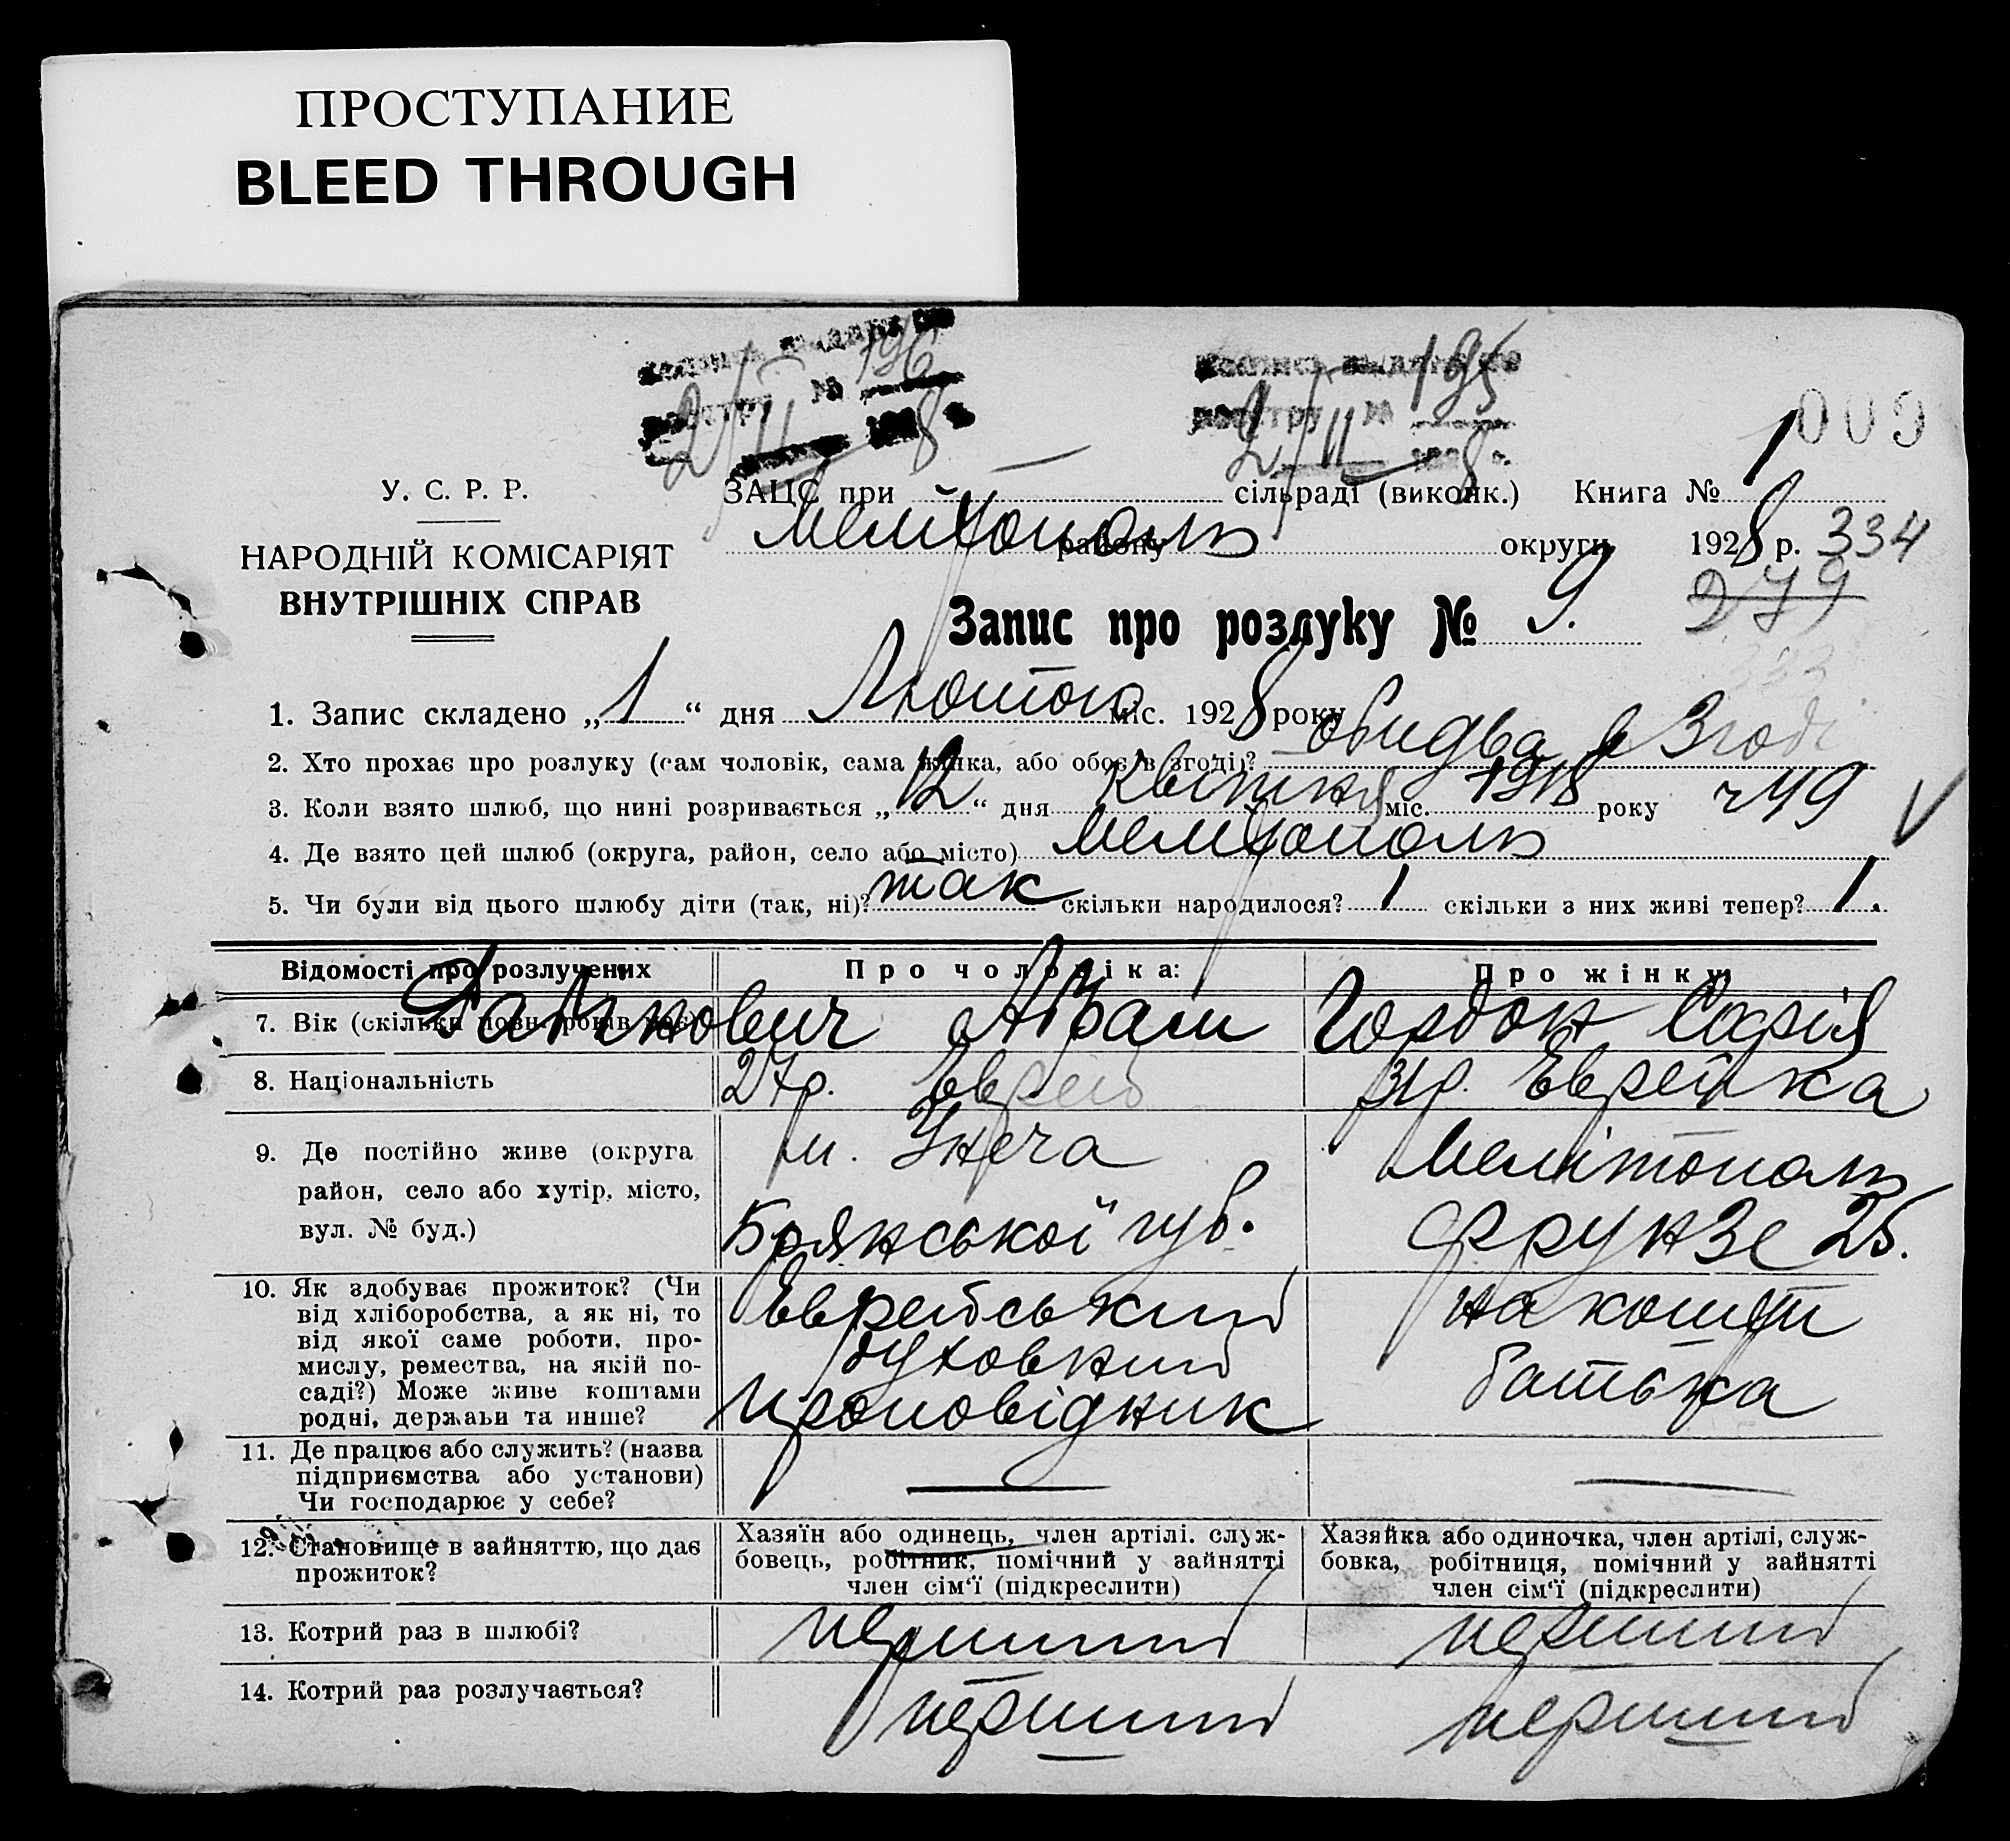 ПРОСТУПАНИЕ
BLEED THROUGH
196
195
№
№
2/II 8
2/II 8
009
У. С. Р. Р.
ЗАЦС при сільраді (виконк.) Книга № 1
НАРОДНІЙ КОМІСАРІЯТ
ВНУТРІШНІХ СПРАВ
Мелітополь району округи 1928 р. 334
279
Запис про розлуку № 9.
1. Запис складено „1“ дня Лютого міс. 1928 року
2. Хто прохає про розлуку (сам чоловік, сама жінка, або обоє в згоді)? обидва в Згоді
3. Коли взято шлюб, що нині розривається „12“ дня Квітня міс. року ч 49
4. Де взято цей шлюб (округа, район, село або місто) Мелітополь
5. Чи були від цього шлюбу діти (так, ні)? так скільки народилося? 1 скільки з них живі тепер? 1.
Відомості про розлучених Про чоловіка: Про жінку:
Абрам Гордон Софія
7. Вік (скільки повн. років має)
8. Національність 27р. Еврей 31р. Еврейка
9. Де постійно живе (округа район, село або хутір, місто, вул. № буд.)
м. Унеча
Брянської губ.
Мелітополь
Фрунзе 25.
10. Як здобуває прожиток? (Чи
від хліборобства, а як ні, то
від якої саме роботи, про-
мислу, ремества, на якій по-
саді?) Може живе коштами
родні, держави та инше?
Еврейський
духовний
проповідник
на кошти
батька
11. Де працює або служить? (назва
підприємства або установи)
Чи господарює у себе?
12. Становище в зайняттю, що дає
прожиток?
Хазяїн або одинець, член артілі. служ-
бовець, робітник, помічний у зайнятті
член сім'ї (підкреслити)
Хазяйка або одиночка, член артілі, служ-
бовка, робітниця, помічний у зайнятті
член сім'ї (підкреслити)
13. Котрий раз в шлюбі? перший перший
14. Котрий раз розлучається? перший перший